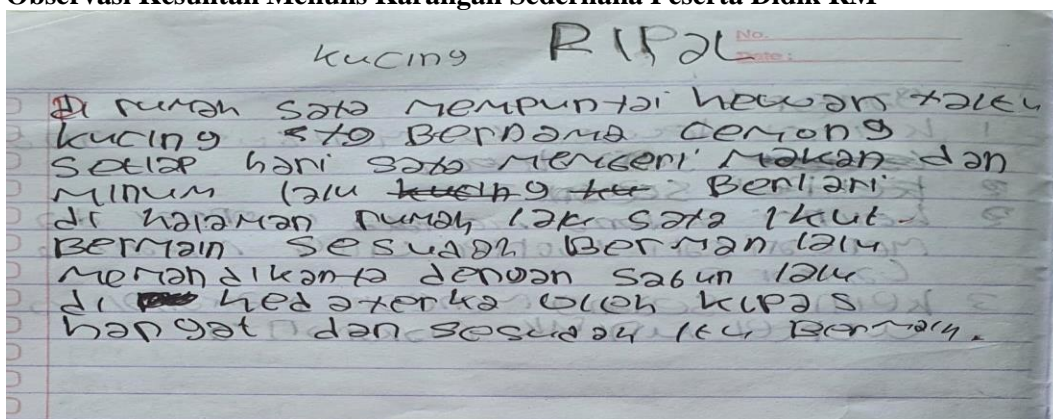 Observasi Kesulitan Menulis Karangan Sederhana Peserta Didik RM
kucing RIPal
No.
Date:
di rumah saya mempunyai hewan yaitu
kucing syg Bernama cemong
setiap hari saya memberi makan dan
minum lalu kucing ku Berlari
di halaman rumah lalu saya ikut
Bermain sesudah Bermain lalu
memandikannya dengan sabun lalu
di oleh kipas
hangat dan sesudah itu Bermain.